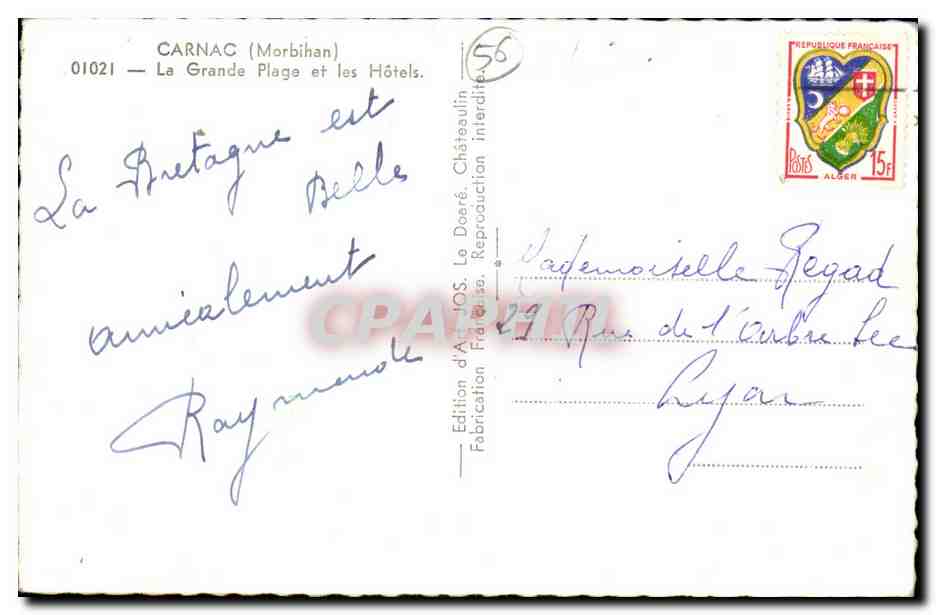 CARNAC (Morbihan)
01021 — La Grande Plage et les Hôtels.
La Bretagne est
Belle
amicalement
Raymonde
Edition d'Art JOS. Le Doaré. Châteaulin
Fabrication Française. Reproduction interdite.
56
REPUBLIQUE FRANÇAISE
POSTES
15F
ALGER
Mademoiselle Regad
29 Rue de l'Arbre Sec
Lyon
CPAPHIL